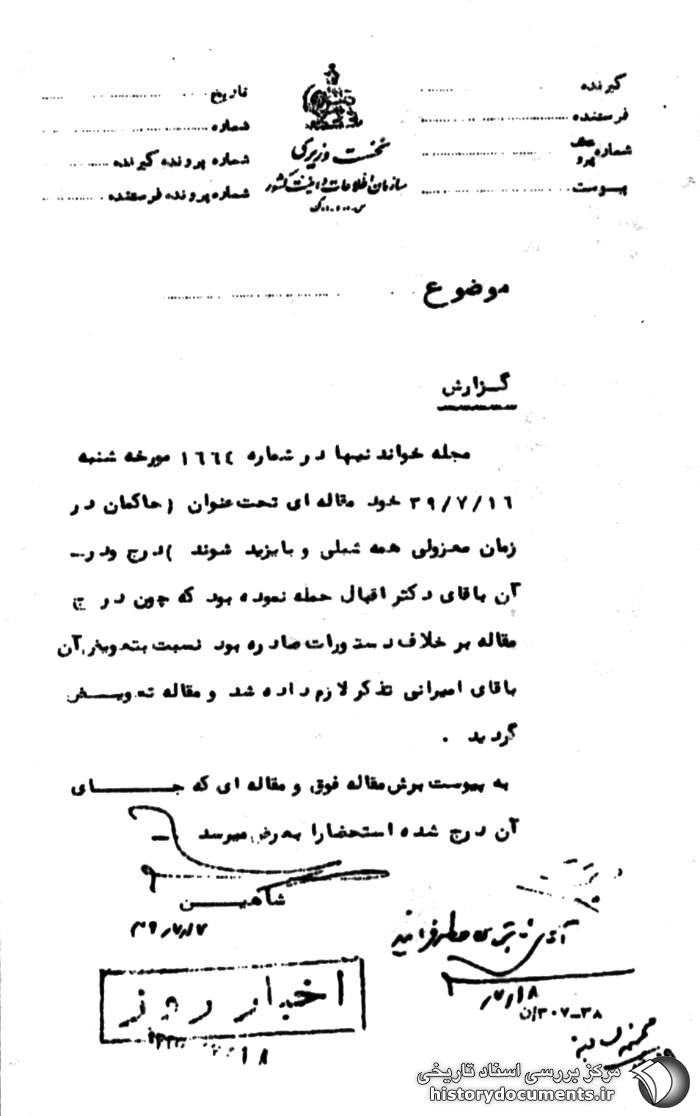 گیرنده
فرستنده
شماره عطف پیرو
پیوست
نخست وزیری
سازمان اطلاعات و امنیت کشور
س.ا.و.ا.ک
تاریخ
شماره
شماره پرونده گیرنده
شماره پرونده فرستنده
موضوع
گزارش
مجله خواندنیها در شماره ١٦٦٤ مورخه شنبه
٣٩/٧/١٦ خود مقاله ای تحت عنوان (حاکمان در
زمان معزولی همه شبلی و بایزید شوند) درج ودر_
آن باقای دکتر اقبال حمله نموده بود که چون درج
مقاله بر خلاف دستورات صادره بود نسبت بتعویض آن
باقای امیرانی تذکر لازم داده شد و مقاله تعویـض
گردید .
به پیوست برش مقاله فوق و مقاله ای که جـای
آن درج شده استحضارا بعرض میرسد _
شاهیـن
٣٩/٧/١٧
٧/١٨
٣٠٧_٣٨/ن
اخبار روز
مرکز بررسی اسناد تاریخی
historydocuments.ir